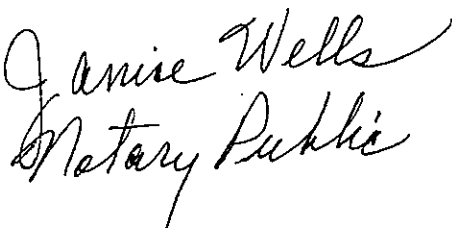 Janise Wells
Notary Public